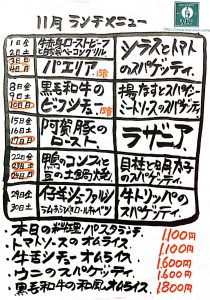 11月 ランチメニュー
1日金
2日土
牛赤身ローストビーフ
シラスとトマト
のスパゲティ。
3日日
4日月
パエリア
15食
8日金
9日土
10日日
黒毛和牛の
ビーフシチュー。
15食
揚げなすとスパイシー
ミートソースのスパゲティ。
15日金
16日土
17日日
阿賀豚の
ロースト。
ラザニア。
22日金
23日土
24日日
鴨のコンフィと
豆の土鍋焼
のスパゲティ。
29日金
30日土
仔羊
牛トリッパの
スパゲティ。
・本日の料理・パスタランチ 1,100円
・トマトソースのオムライス。 1,100円
・牛舌シチューオムライス。 1,600円
・ウニのスパゲッティ。 1,600円
・黒毛和牛の和風オムライス。 1,800円